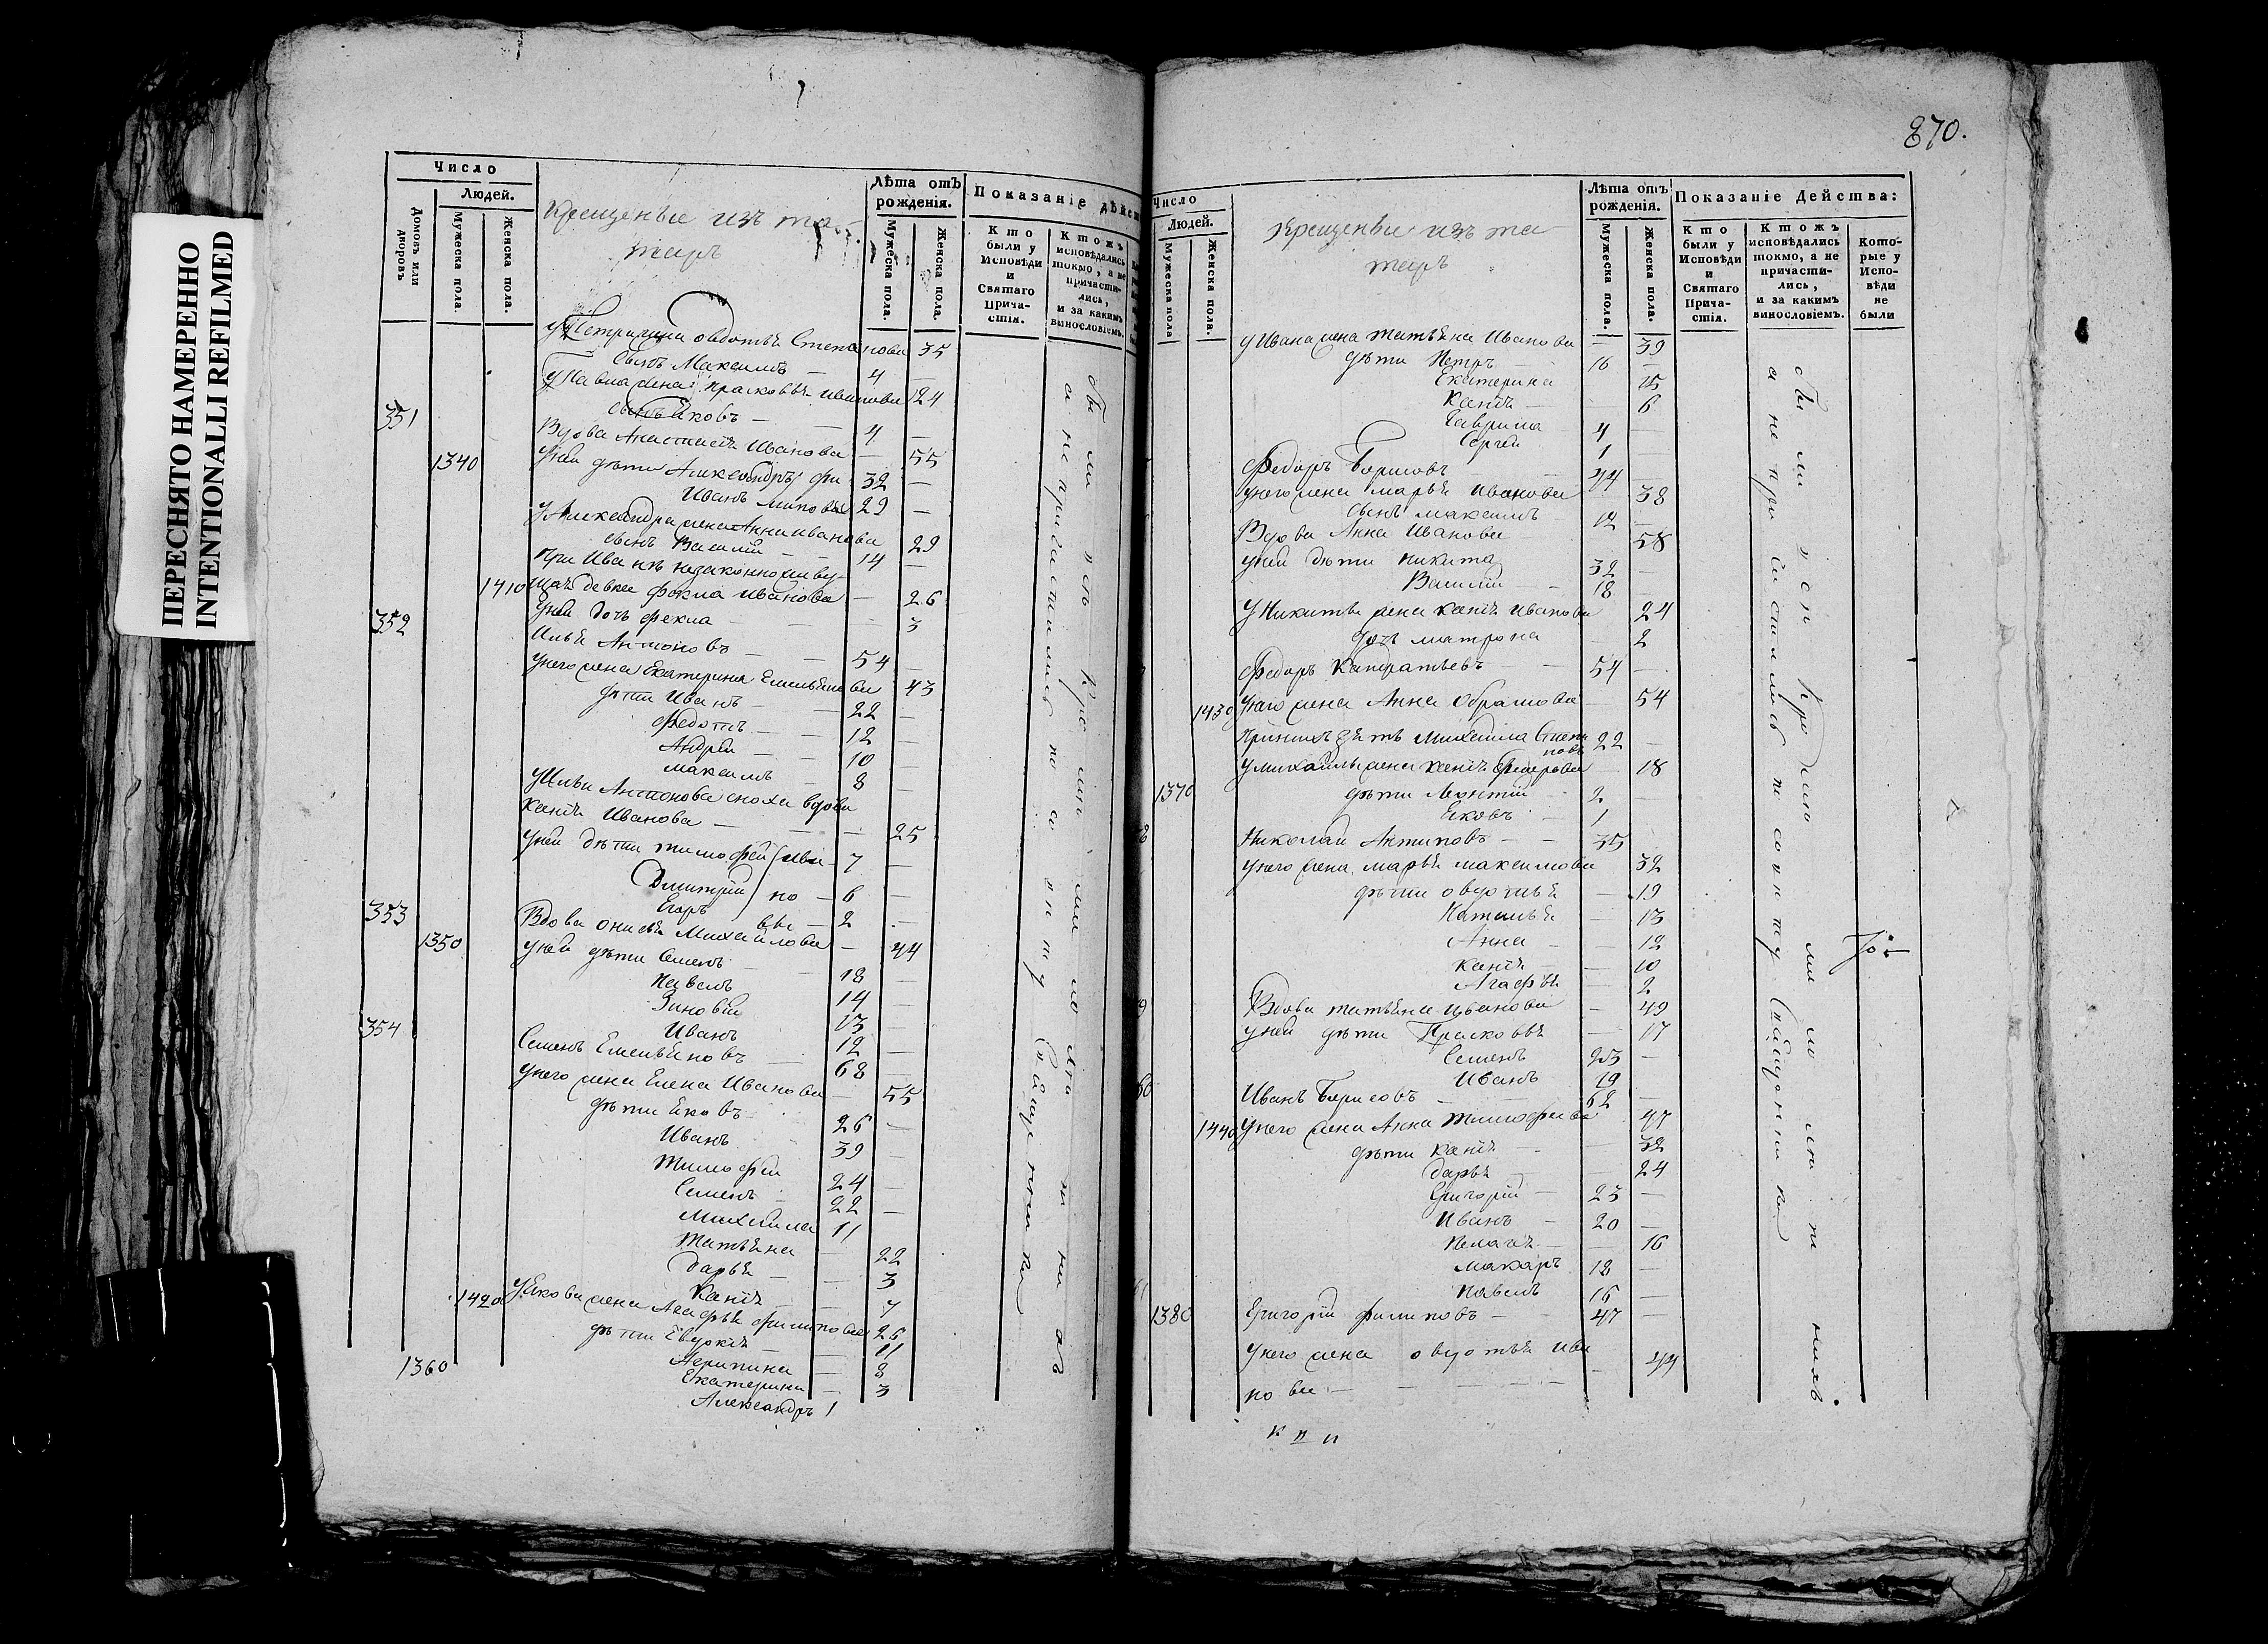 ПЕРЕСНЯТО НАМЕРЕННО
INTENTIONALLI REFILMED
Число
Людей.
Домовъ или дворовъ
Мужеска пола.
Женска пола.
Крещеные изъ та-
таръ
Лѣта отъ рожденія.
Мужеска пола.
Женска пола.
Показаніе дѣйст
Кто были у Исповѣди и Святаго Прича-стія.
Ктожъ исповѣдались токмо, а не причасти-лись, и за какимъ винословіемъ.
у жена овдотья Степанова 35
сынъ Максимъ — 4 —
у Павла жена прасковья иванова 24
сынъ Яковъ — 4 —
351 Вдова Анастасія Иванова — 55
1340 у ней дѣти Александръ фи 32 —
Иванъ липовы 29 —
у Александра жена Анна иванова 29
сынъ Василій — 14 —
при Иванѣ незаконно живу-
1410 щая девка фекла иванова — 26
у ней дочь фекла — 3
352 Илья Антоновъ — 54 —
у него жена Екатерина Емельянова 43
дѣти Иванъ — 22 —
Федотъ — 12 —
Андрей — 10 —
Максимъ 8 —
у Ильи Антонова сноха вдова
Касія Иванова — 25
у ней дѣти тимофей ива- 7 —
Дмитрій но — 6 —
Егоръ вы — 2 —
353 Вдова онисья Михайлова — 44
1350 у ней дѣти Семенъ 18 —
Павелъ 14 —
Зиновій 13 —
Иванъ 12 —
354 Семенъ Емельяновъ 68 —
у него жена Елена Иванова — 55
дѣти Яковъ 26 —
Иванъ 39 —
Тимофей 24 —
Семенъ 22 —
Михайла 11
Татьяна 22
дарья — 3
Касія — 7
1420 у Якова жена Агафья филипова 26
дѣти Евдокія — 11
Агрипина — 8
Екатерина — 3
1360 Александръ 1
были у исп
а не причастились по сонту
870.
Число
Людей.
Мужеска пола
Женска пола.
Крещеные изъ та-
таръ
Лѣта отъ рожденія.
Мужеска пола.
Женска пола.
Показаніе Действа:
Кто были у Исповѣди и Святаго Прича-стія.
Ктожъ исповѣдались токмо, а не причасти-лись, и за какимъ винословіемъ.
Кото-рые у Испо-вѣди не были
у Ивана жена татьяна Иванова — 39
дѣти Петръ 16 —
Екатерина 15
Касія — 6
Гаврила 4 —
Сергей 1 —
Федоръ Борисовъ — 44
у него жена марья Иванова — 38
сынъ максимъ 12 —
Вдова Анна Иванова 58
у ней дѣти никита 32 —
Василій 18 —
у Никиты жена касія Иванова 24
дочь матрона — 2
Федоръ Кандратьевъ — 54 —
1430 у него жена Анна обрамова — 54
принятъ зять михайла Степа 22 —
новъ
у михайлы жена касія федорова — 18
1370 дѣти Леонтій — 2 —
Яковъ — 1
Николай Антиповъ — 35
у него жена марья максимова 32
дѣти овдотья — 19
Наталья 13
Анна — 12
касія — 10
Агафья 2
Вдова татьяна иванова — 49
у ней дѣти Прасковья — 17
Семенъ 25 —
Иванъ 19
Иванъ Борисовъ — 62 —
1440 у него жена Анна тимофеева 47
дѣти касія — 32
дарья 24
Григорій — 23 —
Иванъ — 20 —
Пелагія — 16
макаръ 18 —
павелъ 16 —
1380 Григорій филиповъ — 47 —
у него жена овдотья ива
нова — 44
были у исп
а не причастились по сонту